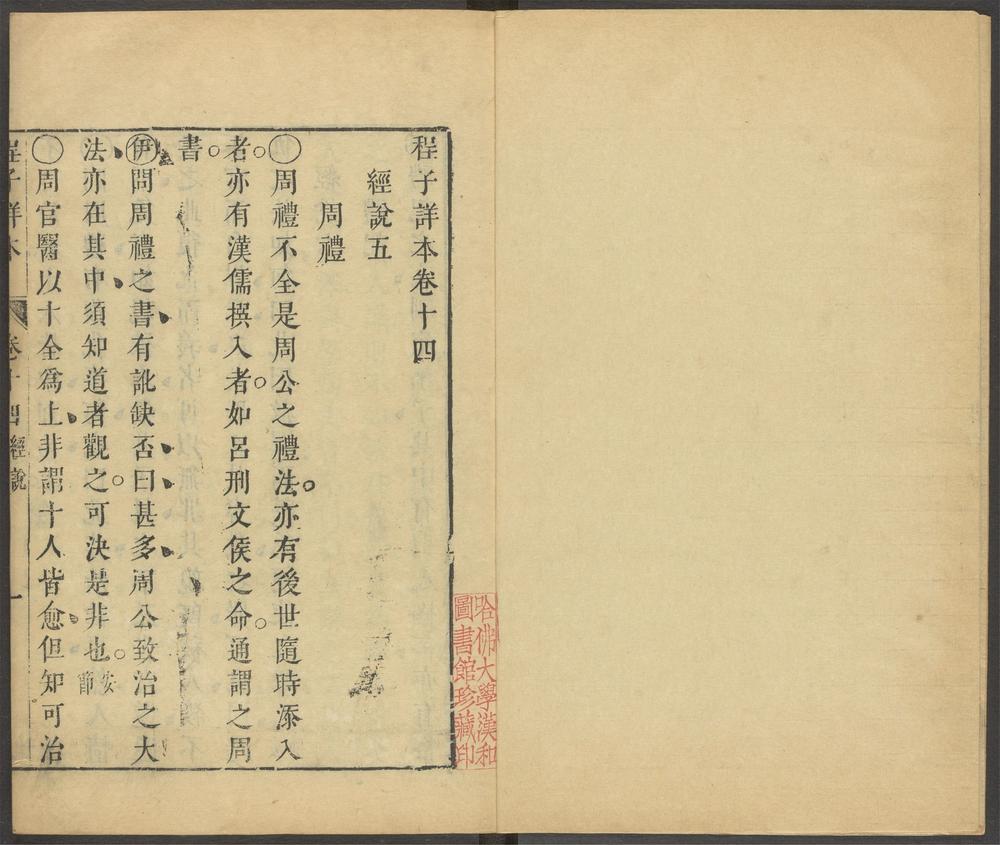 程子詳本卷十四
經說五
周禮
周禮不全是周公之禮法亦有後世隨時添入
者亦有漢儒撰入者如呂刑文侯之命通謂之周
書
伊問周禮之書有訛缺否曰甚多周公致治之大
法亦在其中須知道者觀之可決是非也
周官醫以十全爲上非謂十人皆愈但知可治
程子詳本
卷十四經說
一
哈佛大學漢和
圖書館珍藏印